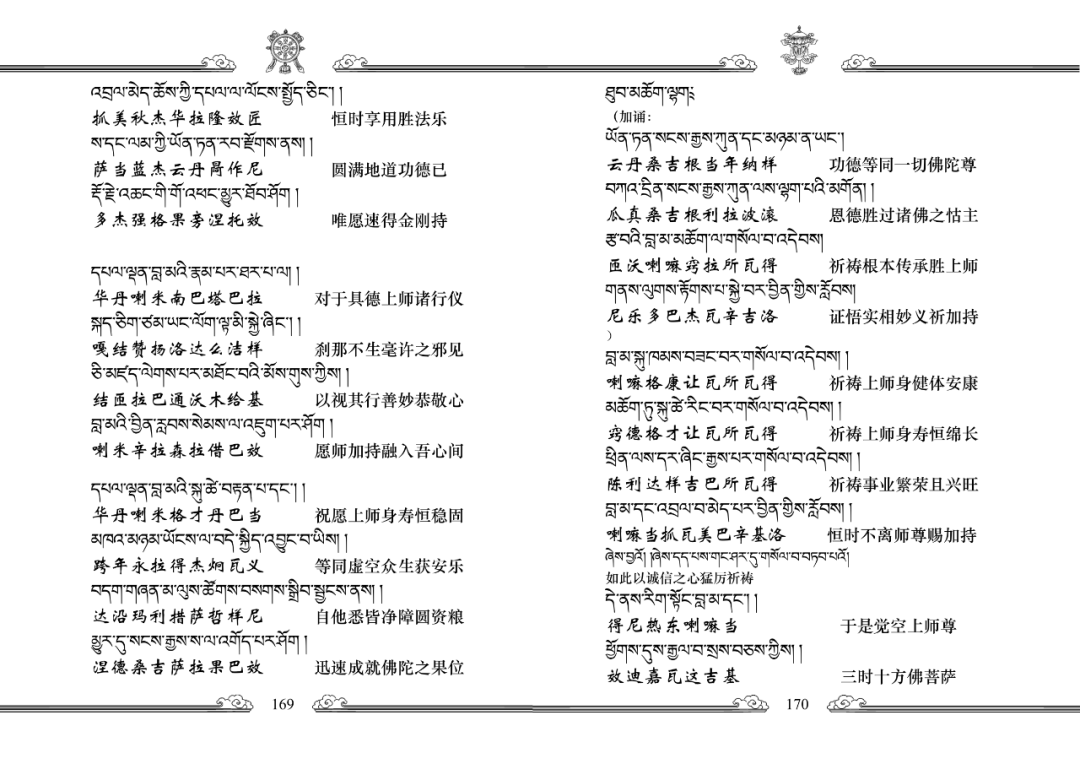 འབྲལ་མེད་ཆོས་ཀྱི་དཔལ་ལ་ལོངས་སྤྱོད་ཅིང་། །
抓美秋杰华拉隆效匠 恒时享用胜法乐
ས་དང་ལམ་གྱི་ཡོན་ཏན་རབ་རྫོགས་ནས། །
萨当蓝杰云丹 作尼 圆满地道功德已
རྡོ་རྗེ་འཆང་གི་གོ་འཕང་མྱུར་ཐོབ་ཤོག །
多杰强格果旁涅托效 唯愿速得金刚持
དཔལ་ལྡན་བླ་མའི་རྣམ་པར་ཐར་པ་ལ། །
华丹喇米南巴塔巴拉 对于具德上师诸行仪
སྐད་ཅིག་ཙམ་ཡང་ལོག་ལྟ་མི་སྐྱེ་ཞིང་། །
嘎结赞扬洛达么洁样 刹那不生毫许之邪见
ཅི་མཛད་ལེགས་པར་མཐོང་བའི་མོས་གུས་ཀྱིས། །
结匝拉巴通沃木给基 以视其行善妙恭敬心
བླ་མའི་བྱིན་རླབས་སེམས་ལ་འཇུག་པར་ཤོག །
喇米辛拉森拉借巴效 愿师加持融入吾心间
དཔལ་ལྡན་བླ་མའི་སྐུ་ཚེ་བརྟན་པ་དང་། །
华丹喇米格才丹巴当 祝愿上师身寿恒稳固
མཁའ་མཉམ་ཡོངས་ལ་བདེ་སྐྱིད་འབྱུང་བ་ཡིས། །
跨年永拉得杰炯瓦义 等同虚空众生获安乐
བདག་གཞན་མ་ལུས་ཚོགས་བསགས་སྒྲིབ་སྦྱངས་ནས། །
达沿玛利措萨哲样尼 自他悉皆净障圆资粮
མྱུར་དུ་སངས་རྒྱས་ས་ལ་འགོད་པར་ཤོག །
涅德桑吉萨拉果巴效 迅速成就佛陀之果位
169
ཐུབ་མཆོག་ལྷག༔
（加诵：
ཡོན་ཏན་སངས་རྒྱས་ཀུན་དང་མཉམ་ན་ཡང་།
云丹桑吉根当年纳样 功德等同一切佛陀尊
བཀའ་དྲིན་སངས་རྒྱས་ཀུན་ལས་ལྷག་པའི་མགོན། །
瓜真桑吉根利拉波滚 恩德胜过诸佛之怙主
རྩ་བའི་བླ་མ་མཆོག་ལ་གསོལ་བ་འདེབས།
匝沃喇嘛窍拉所瓦得 祈祷根本传承胜上师
གནས་ལུགས་རྟོགས་པ་སྐྱེ་བར་བྱིན་གྱིས་རློབས།
尼乐多巴杰瓦辛吉洛 证悟实相妙义祈加持
）
བླ་མ་སྐུ་ཁམས་བཟང་བར་གསོལ་བ་འདེབས། །
喇嘛格康让瓦所瓦得 祈祷上师身健体安康
མཆོག་ཏུ་སྐུ་ཚེ་རིང་བར་གསོལ་བ་འདེབས། །
窍德格才让瓦所瓦得 祈祷上师身寿恒绵长
ཕྲིན་ལས་དར་ཞིང་རྒྱས་པར་གསོལ་བ་འདེབས། །
陈利达样吉巴所瓦得 祈祷事业繁荣且兴旺
བླ་མ་དང་འབྲལ་བ་མེད་པར་བྱིན་གྱིས་རློབས། །
喇嘛当抓瓦美巴辛基洛 恒时不离师尊赐加持
ཞེས་བྱའོ། །ཞེས་དད་པས་གདུང་ཤར་དུ་གསོལ་བ་བཏབ་པའོ།
如此以诚信之心猛厉祈祷
དེ་ནས་རིག་སྟོང་བླ་མ་དང་། །
得尼热东喇嘛当 于是觉空上师尊
ཕྱོགས་དུས་རྒྱལ་བ་སྲས་བཅས་ཀྱིས། །
效迪嘉瓦这吉基 三时十方佛菩萨
170